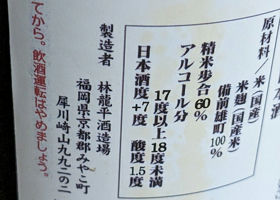 本酒
原材料
米（国産）
米麹（国産米）
備前雄町100%
精米歩合60%
アルコール分
17度以上18度未満
日本酒度+7 酸度1.5度
製造者
林龍平酒造場
福岡県京都郡みやこ町
犀川崎山九九二の二
てから。飲酒運転はやめましょう。